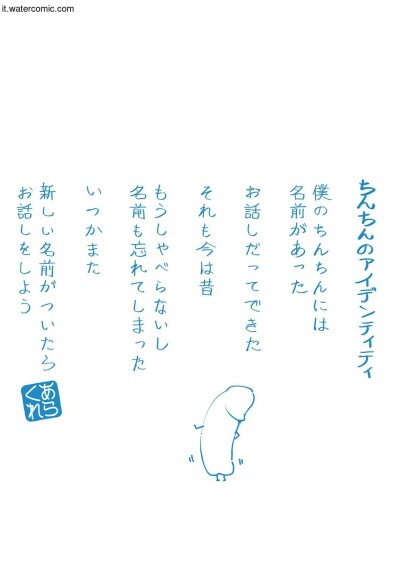 it.watercomic.com
ちんちんのアイデンティティ
僕のちんちんには
名前があった
お話しだってできた
それも今は昔
もうしゃべらないし
名前も忘れてしまった
いつかまた
新しい名前がついたら
お話しをしよう
あら
くれ